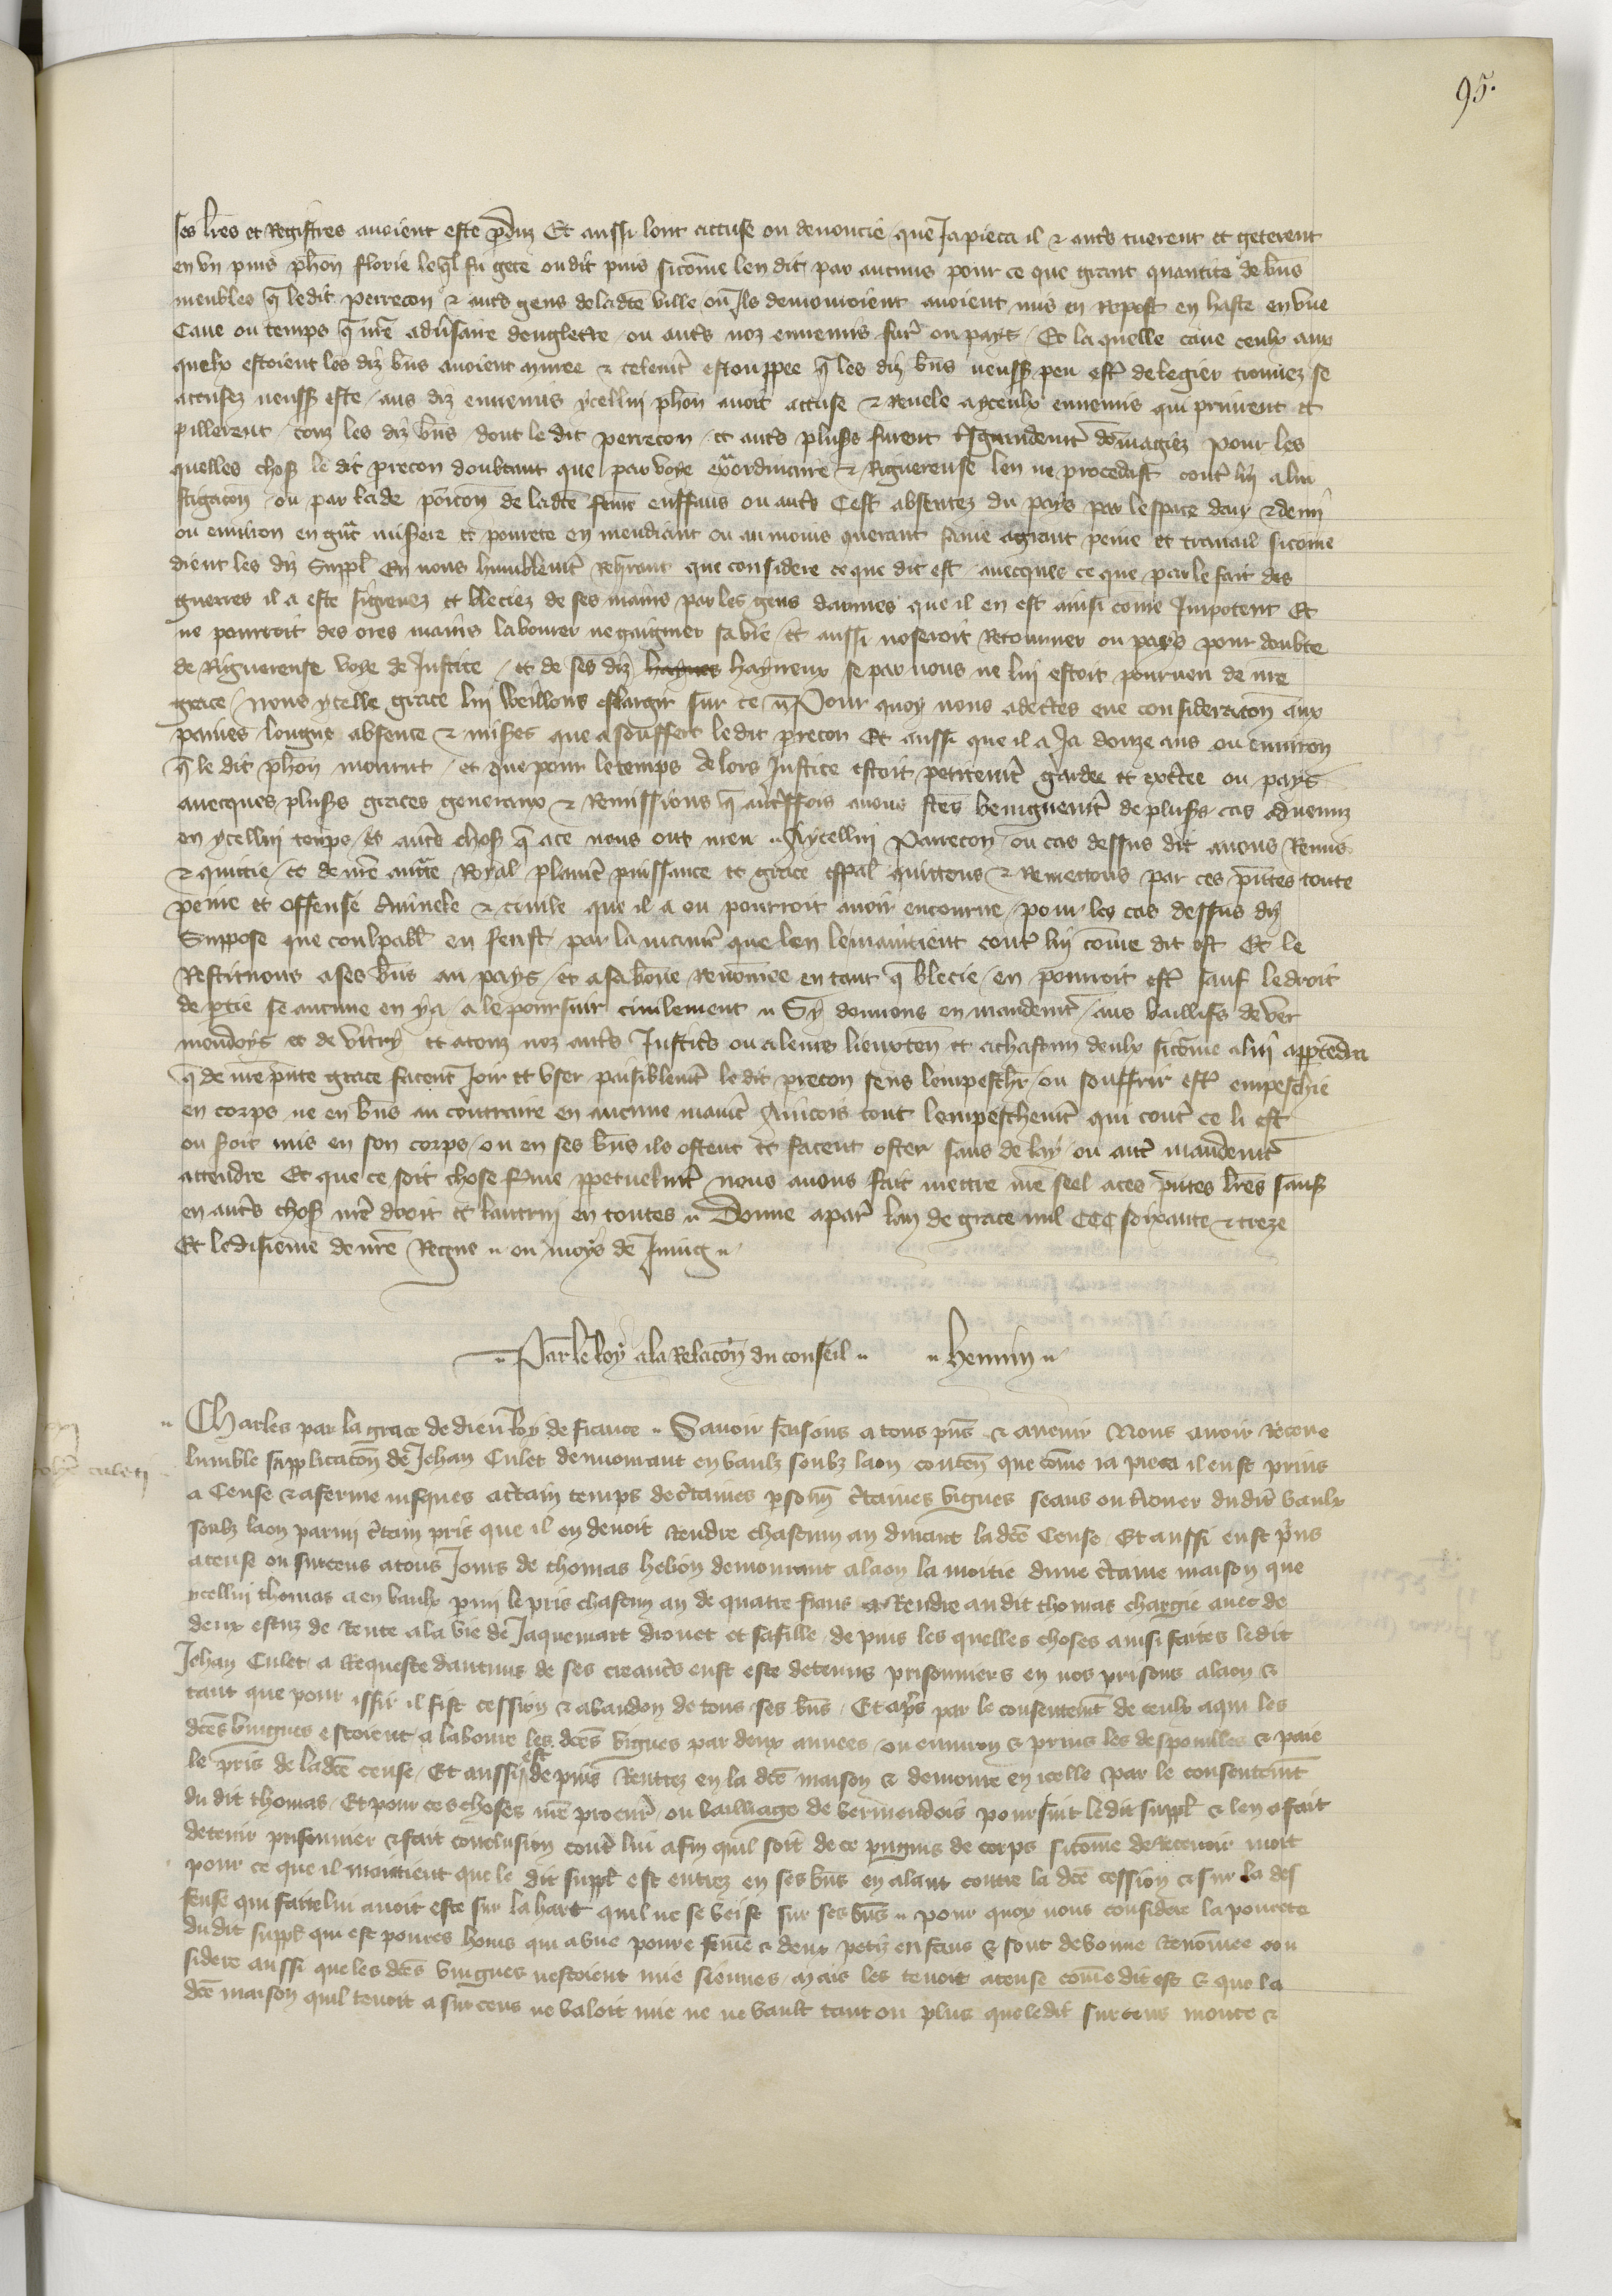 95.
ses lres et Registres avoient este pduz Et aussi lont accuse ou denoncie que Japieca il & auts tuerent et geterent
en un puis phon florie leql fu gete oudit puis sicome len dit par aucuns pour ce que grant quantite de bns
meubles q ledit perrecon & auts gens de ladte ville ou Ils demouroient avoient mis en repost en haste en une
Cave ou temps q nre advsaire dengleterre ou auts noz ennemis furt ou pays Et la quelle cave ceulx aux
quelx estoient les diz bns avoient muree & telemt estouppee q les diz bns neussent peu estr de legier trouvez se
accusez neussent este aus diz ennemis ycellui phon avoit accuse & Revele a yceulx ennemis qui prinrent et
pillerent touz les diz bns dont le dit perrecon et auts plusrs furent grandemt domagiez Pour les
quelles choses le dit precon doubtant que par voye exordinaire & Riguereuse len ne procedast contr lui a lin
stigacon ou par laide porcon de ladte feme enffans ou auts Cest absentez du pays par lespace dan & demi
ou environ en gnt misere et povrete en mendiant ou au moins querant sa vie a grant peine et travail sicome
dient les diz Suppl En nous humblemt requant que considere ce que dit est avecques ce que par le fait des
guerres il a este si grevez et bleciez de ses mains par les gens darmes que il en est ainsi come Impotent Et
ne pourroit des ores mais labourer ne gaignier sa vie et aussi noseroit Retourner ou pays pour doubte
de Riguereuse voye de Justice et de ses diz haynes hayneux se par nous ne lui estoit pourveu de nre
grace nous ycelle grace lui veillons eslargir sur ce Pour quoy nous adectes eue consideracon aux
paines longue absence & misers que a souffert le dit precon Et aussi que il a Ja douze ans ou environ
q le dit phon mourut et que pour le temps de lors Justice estoit petitemt gardee et exctee ou pays
avecques plusrs graces generaux & Remissions q autresfois avons ftes benignemt de plusrs cas advenuz
en ycellui temps & auts choses q a ce nous ont meu A ycellui Parrecon ou cas dessus dit avons Remis
& quictie et de nre aucte Royal plaine puissance et grace espal quittons & Remectons par ces pntes toute
peine et offense criminele & civile que il a ou pourroit avoir encourue pour les cas dessus diz
Suppose que coulpabl en feust par la manie que len le maintient contr lui come dit est Et le
Restituons a ses bns au pays et a sa bone renomee en tant q blecie en pourroit estr sauf le droit
de ptie se aucune en y a a le poursuir civilement Sy donnons en mandemt aus baillifs de Ver
mendoys et de vitry et a touz noz auts Justics ou a leurs lieuxten et a chascun deulx sicome a lui apptendra
q de nre pnte grace facent Joir et user paisiblemt le dit precon sens lempeschr ou souffrir estr empeschie
en corps ne en bns au contraire en aucune manie Aincois tout lempeschemt qui contr ce li est
ou soit mis en son corps ou en ses bns ils ostent et facent oster sans delay ou autr mandemt
attendre Et que ce soit chose ferme ppetuelmt nous avons fait mettre nre seel a ces pntes lres sauf
en auts choses nre droit et lautrui en toutes Donne a paris lan de grace mil CCC soixante & treze
Et le disieme de nre Regne ou moys de Juing
Par le Roy a la Relacon du conseil hennin
Charles par la grace de dieu Roy de france Savoir faisons a tous pns & avenir Nous avoir Receue
lumble supplicacon de Jehan Culet demourant en vaulx soubz laon conten que come ia pieca il eust prins
a Cense & a ferme iusques a ctain temps de ctaines psones ctaines vignes seans ou terrouer dudit vaulx
soubz laon parmi ctain pris que il en devoit rendre chascun an durant ladte Cense Et aussi eust prins
a cense ou surcens a tous Jours de thomas hebon demourant a laon la moitie dune ctaine maison que
ycellui thomas a en vaulx pmi le pris chascun an de quatre frans a Rendre au dit thomas chargie avec de
deux escuz de rente a la vie de Jaquemart drouet et sa fille depuis les quelles choses ainsi faites ledit
Jehan Culet a Requeste daucuns de ses creancs eust este detenus prisonniers en nos prisons a laon &
tant que pour issir il fist cession & abandon de tous ses bns Et apres par le consentemt de ceulx a qui les
dctes vingnes estoient a laboure les dctes vignes par deux annees ou environ & prins les despouilles & paie
le pris de ladte cense Et aussi est depuis Rentrez en la dte maison & demoure en icelle par le consentemt
du dit thomas Et pour ces choses nre procur ou bailliage de vermendois poursuit ledit suppl & len a fait
detenir prisonnier & fait conclusion contr lui afin quil soit de ce pugnis de corps sicome de recevoir mort
pour ce que il maintient que le dit suppl est entrez en ses bns en alant contre la dte cession & sur la def
fense qui faite lui avoit este sur la hart quil ne se veist sur ses bns pour quoy nous considere la povrete
du dit suppl qui est povres homs qui a une povre feme & deux petiz enfans & sont de bonne renomee con
sidere aussi que les dtes vingnes nestoient mie siennes mais les tenoit a cense come dit est & que la
dte maison quil tenoit a surcens ne valoit mie ne ne vault tant ou plus que ledit surcens monte &